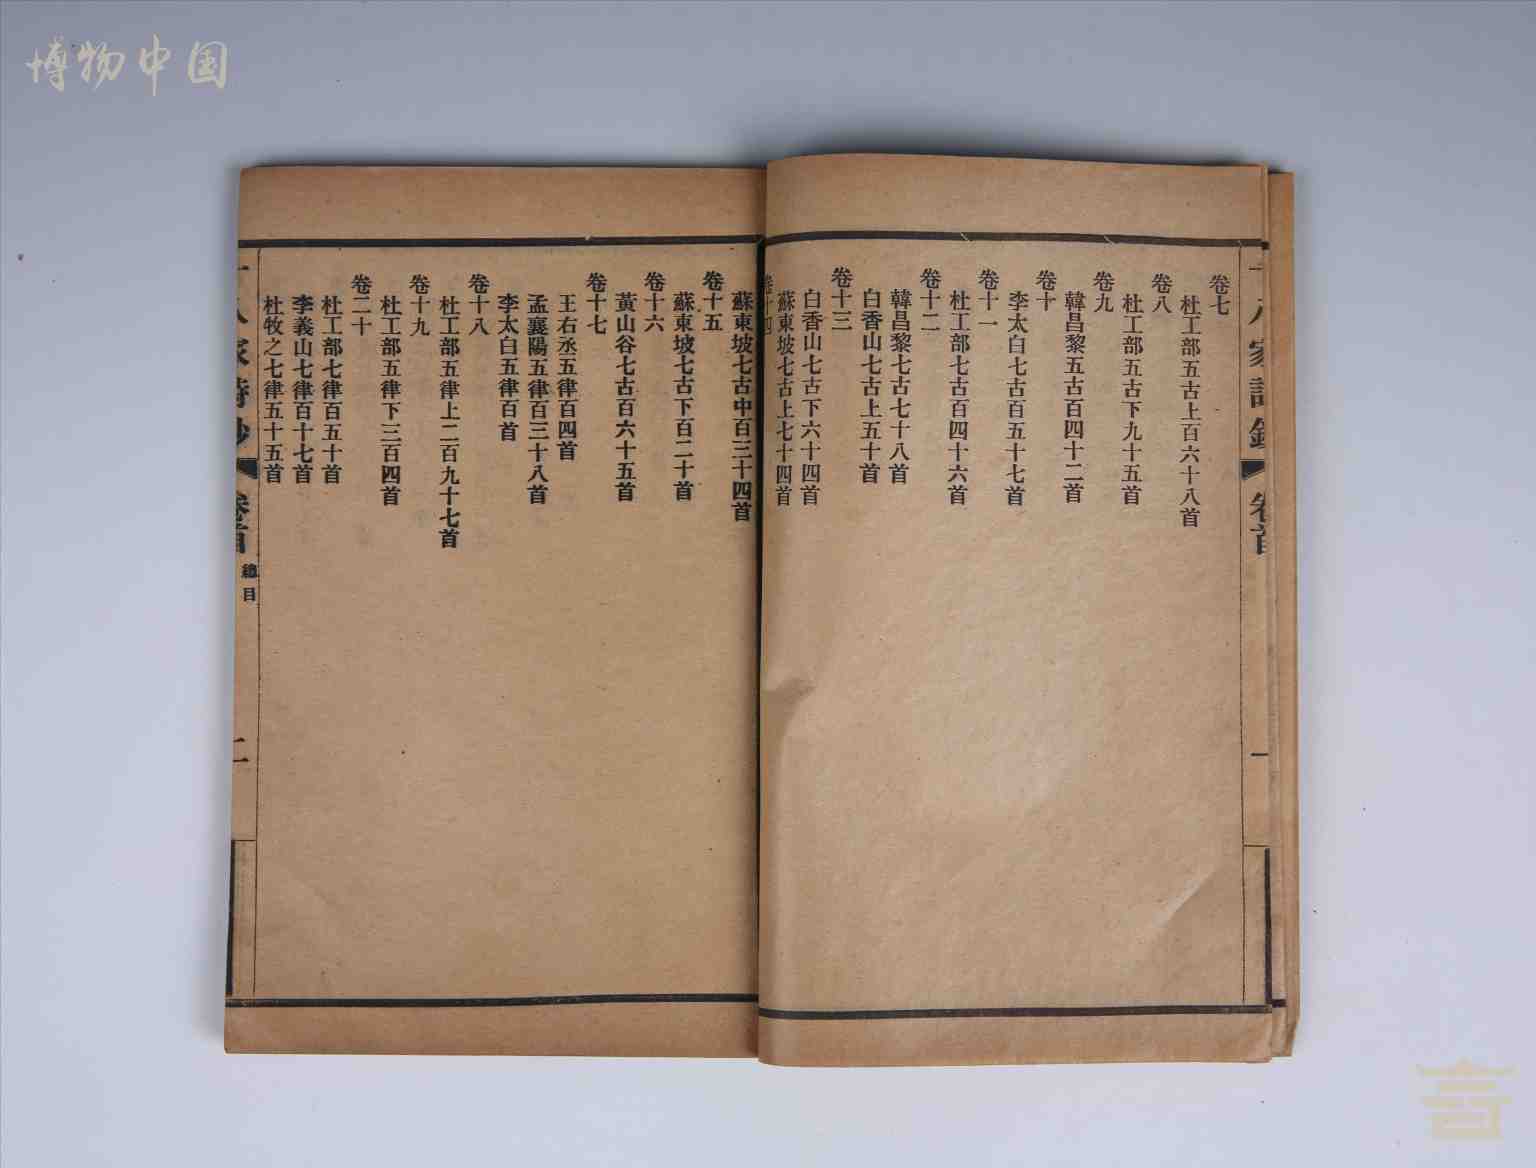 博物中国
十八家詩鈔
卷首
一
卷七
杜工部五古上百六十八首
卷八
杜工部五古下九十五首
卷九
韓昌黎五古百四十二首
卷十
李太白七古百五十七首
卷十一
杜工部七古百四十六首
卷十二
韓昌黎七古七十八首
白香山七古上五十首
卷十三
白香山七古下六十四首
蘇東坡七古上七十四首
卷十四
蘇東坡七古中百三十四首
卷十五
蘇東坡七古下百二十首
卷十六
黃山谷七古百六十五首
卷十七
王右丞五律百四首
孟襄陽五律百三十八首
李太白五律百首
卷十八
杜工部五律上二百九十七首
卷十九
杜工部五律下三百四首
卷二十
杜工部七律百五十首
李義山七律百十七首
杜牧之七律五十五首
十八家詩鈔
卷首
總目
二